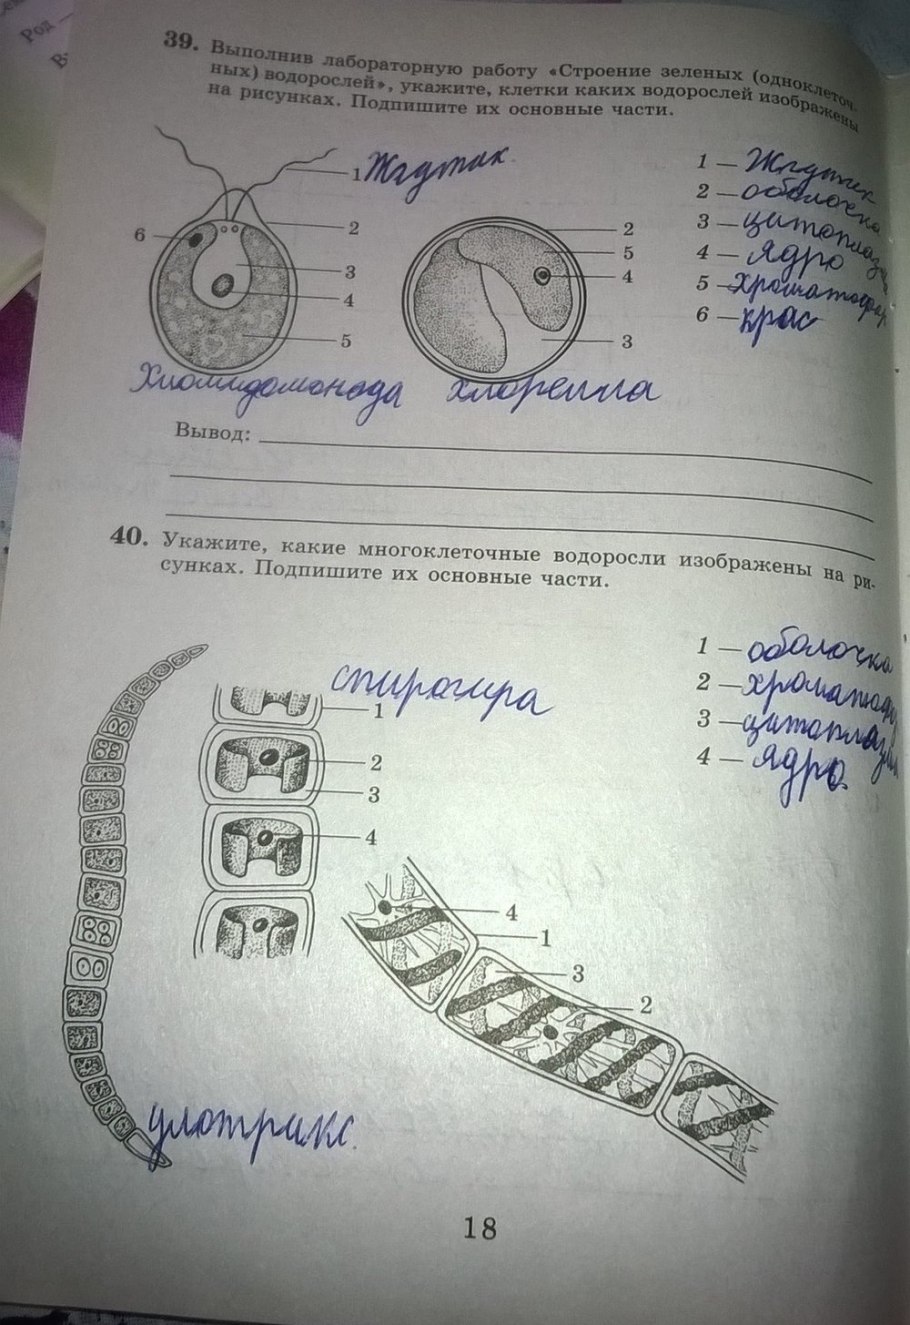 Род —
39. Выполнив лабораторную работу «Строение зеленых (одноклеточ-
ных) водорослей», укажите, клетки каких водорослей изображены
на рисунках. Подпишите их основные части.
1 Жгутик
2
6
3
4
5
2
5
4
3
1 — Жгутик
2 — оболочка
3 — цитоплазма
4 — Ядро
5 — хроматофор
6 — крас
Хламидомонада
хлорелла
Вывод:
40. Укажите, какие многоклеточные водоросли изображены на ри-
сунках. Подпишите их основные части.
спирогира
1
2
3
4
1 — оболочка
2 — хроматофор
3 — цитоплазма
4 — Ядро.
4
1
3
2
улотрикс.
18